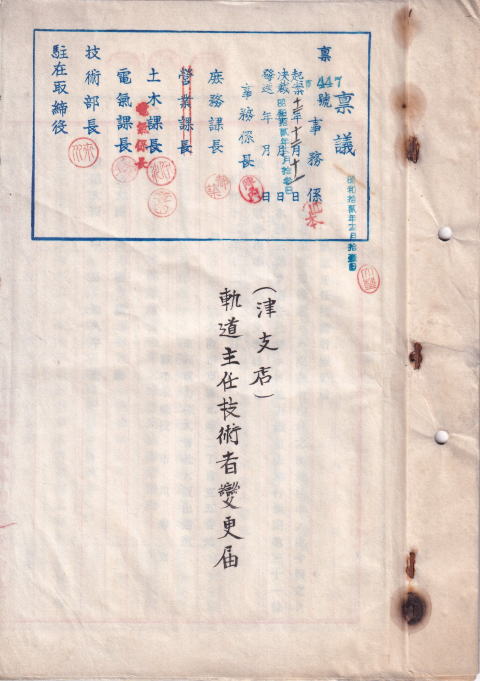 稟議
稟447號
事務係
起案十二年十二月十一日
決裁昭和拾貳年 月拾 日
發送 年 月 日
事務係長
庶務課長
營業課長
土木課長
電氣係長
電氣課長
技術部長
駐在取締役
(津支店)
軌道主任技術者變更届